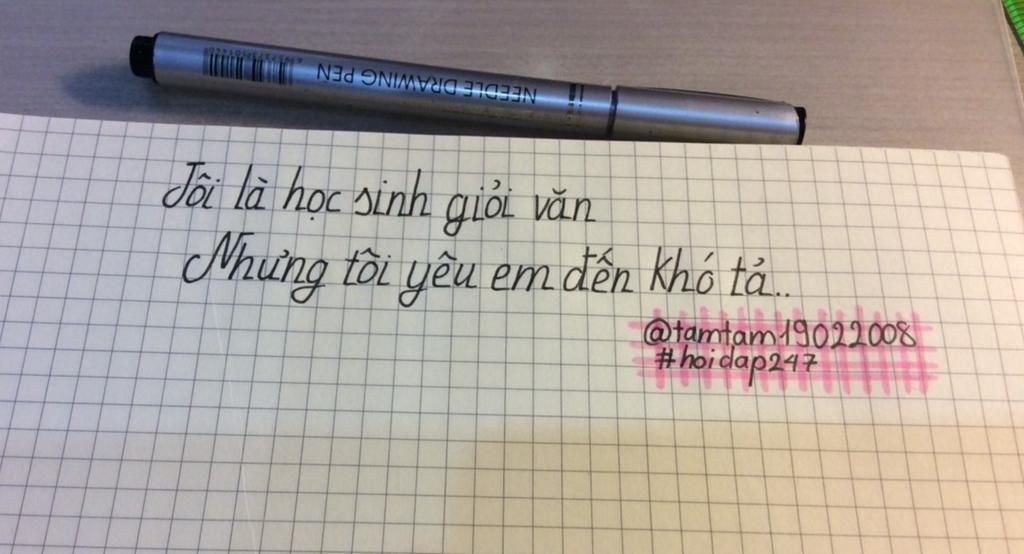 NEEDLE DRAWING PEN
Tôi là học sinh giỏi văn
Nhưng tôi yêu em đến khó tả..
@tamtam19022008
#hoidap247